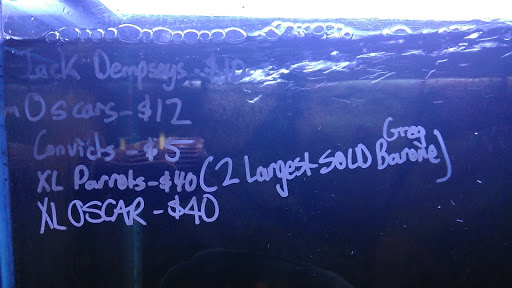 Jack Dempseys - $10
m Oscars - $12
Convicts - $5
XL Parrots - $40 (2 Largest SOLD Greg Barone)
XL OSCAR - $40